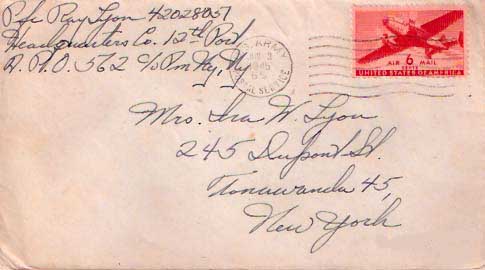 Pfc Ray Lyon 42028051
Headquarters Co. 12th Port
A.P.O. 562 c/o Pm Ny, Ny
U.S. ARMY
3
1945
POSTAL SERVICE
AIR 6 MAIL
CENTS
UNITED STATES OF AMERICA
Mrs. Ira W. Lyon
245 Dupont St.
Tonawanda 45,
New York